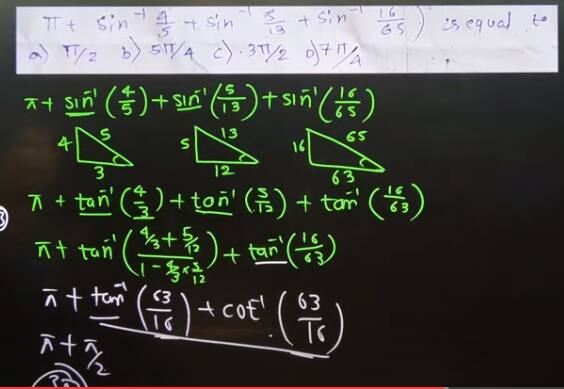 π + sin⁻¹ 4/5 + sin⁻¹ 5/13 + sin⁻¹ 16/65) is equal to
a) π/2 b) 5π/4 c) 3π/2 d) 7π/4
π + sin⁻¹(4/5) + sin⁻¹(5/13) + sin⁻¹(16/65)
4 5 3
5 13 12
16 65 63
π + tan⁻¹(4/3) + tan⁻¹(5/12) + tan⁻¹(16/63)
π + tan⁻¹((4/3 + 5/12)/(1 - 4/3 × 5/12)) + tan⁻¹(16/63)
π + tan⁻¹(63/16) + cot⁻¹(63/16)
π + π/2